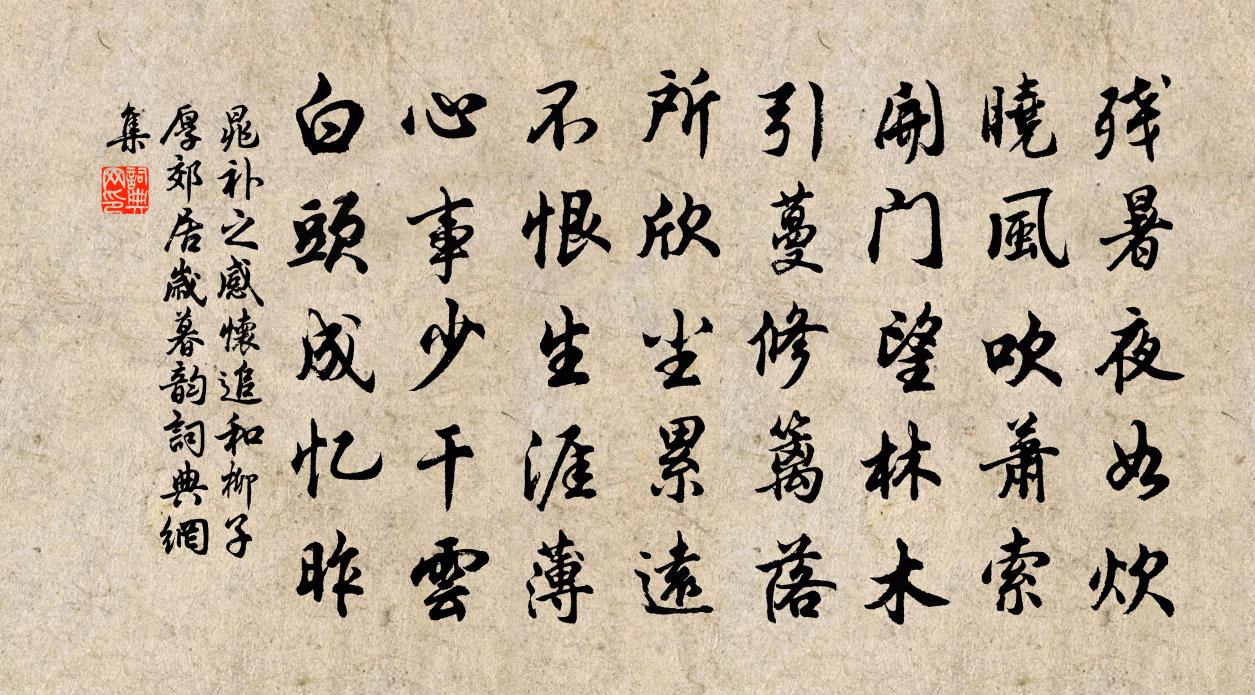 残暑夜如炊
曉風吹萧索
開门望林木
引蔓修篱落
所欣尘累遠
不恨生涯薄
心事少干雲
白頭成忆昨
晁补之感懷追和柳子
厚郊居歲暮韵詞典網
集
詞典网印